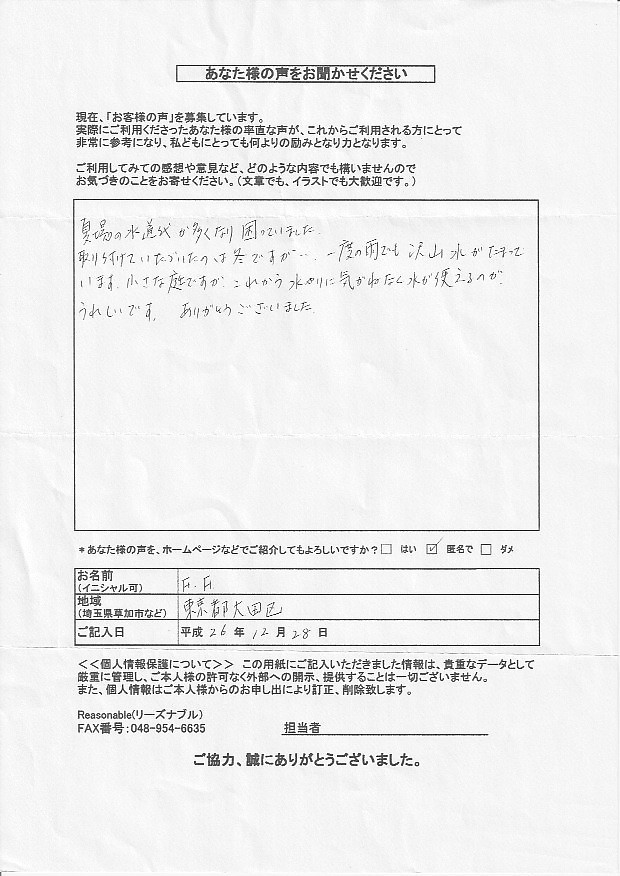 あなた様の声をお聞かせください
現在、「お客様の声」を募集しています。
実際にご利用くださったあなた様の率直な声が、これからご利用される方にとって
非常に参考になり、私どもにとっても何よりの励みとなり力となります。
ご利用してみての感想や意見など、どのような内容でも構いませんので
お気づきのことをお寄せください。（文章でも、イラストでも大歓迎です。）
夏場の水道代が多くなり困っていました。
取り付けていただいたのは冬ですが… 一度の雨でも沢山水がたまって
います。小さな庭ですが これから水やりに気がねなく水が使えるのが
うれしいです。 ありがとうございました。
*あなた様の声を、ホームページなどでご紹介してもよろしいですか？□ はい ☑ 匿名で □ ダメ
お名前
（イニシャル可）
F.F
地域
（埼玉県草加市など）
東京都大田区
ご記入日
平成 26 年 12 月 28 日
＜＜個人情報保護について＞＞ この用紙にご記入いただきました情報は、貴重なデータとして
厳重に管理し、ご本人様の許可なく外部への開示、提供することは一切ございません。
また、個人情報はご本人様からのお申し出により訂正、削除致します。
Reasonable（リーズナブル）
FAX番号：048-954-6635
担当者
ご協力、誠にありがとうございました。